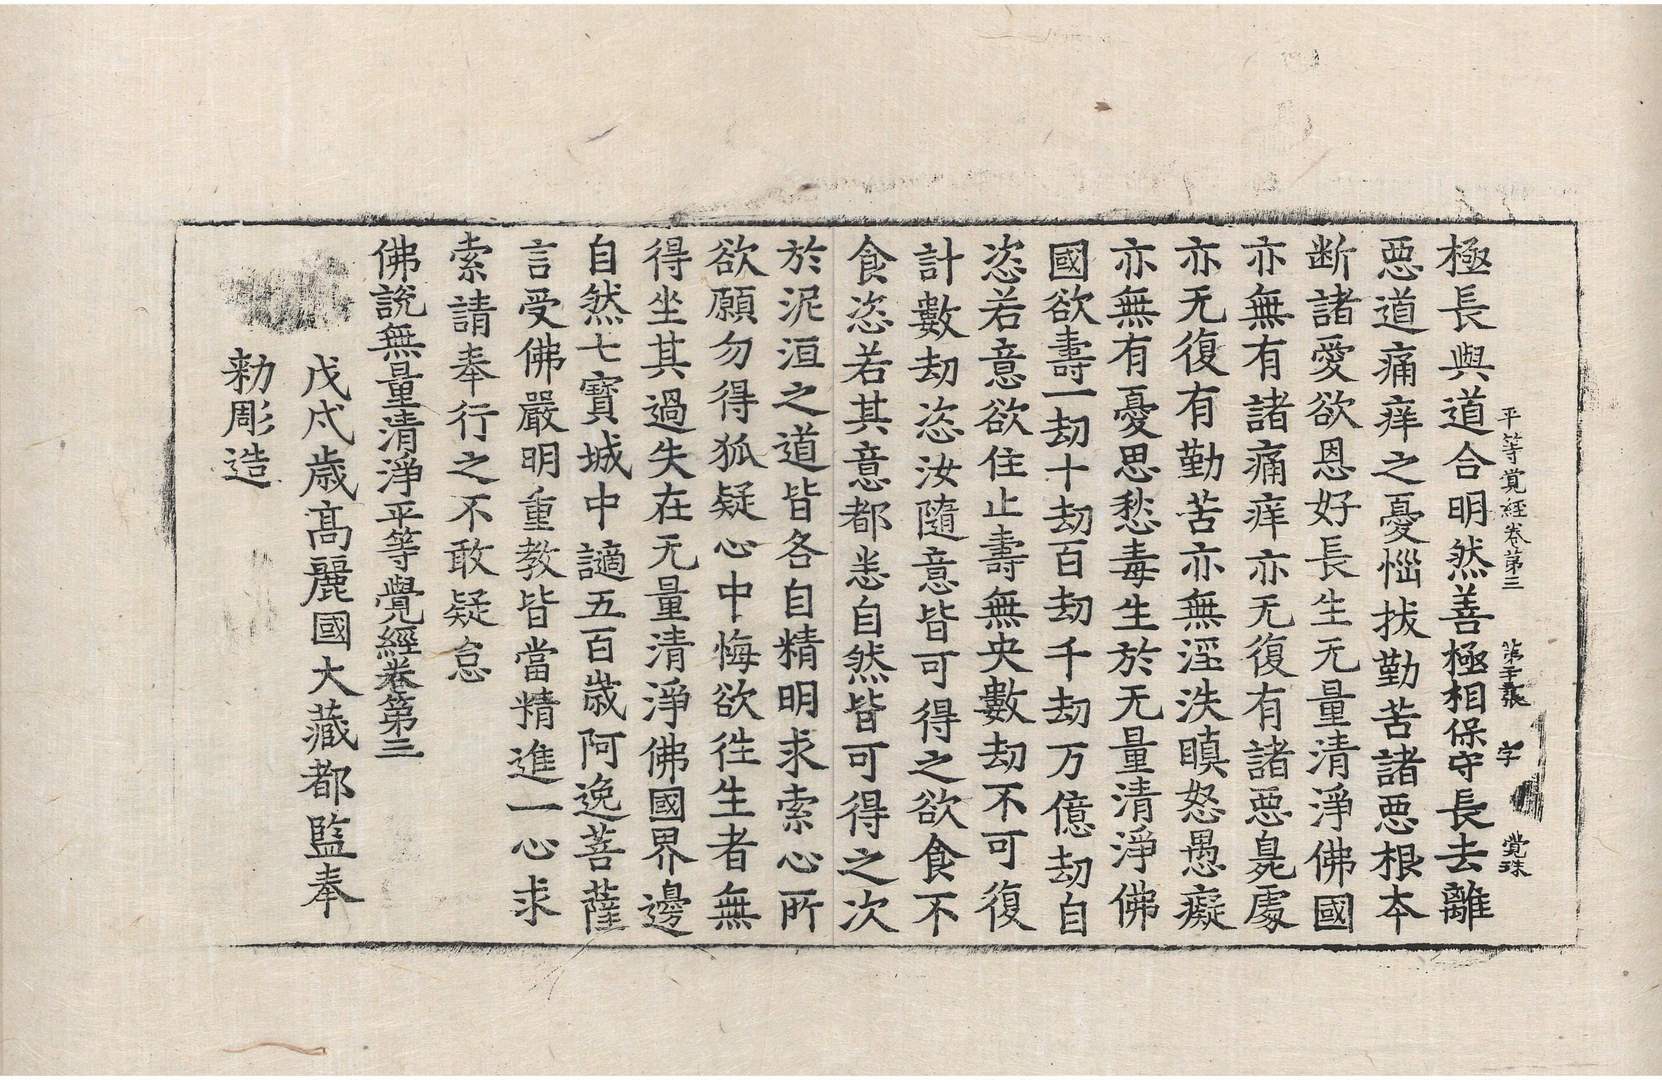 平等覺經卷第三 第 張 字 覺珠
極長與道合明然善極相保守長去離
惡道痛痒之憂惱拔勤苦諸惡根本
断諸愛欲恩好長生无量清淨佛國
亦無有諸痛痒亦无復有諸惡臭處
亦无復有勤苦亦無淫泆瞋怒愚癡
亦無有憂思愁毒生於无量清淨佛
國欲壽一劫十劫百劫千劫万億劫自
恣若意欲住止壽無央數劫不可復
計數劫恣汝隨意皆可得之欲食不
食恣若其意都悉自然皆可得之次
於泥洹之道皆各自精明求索心所
欲願勿得狐疑心中悔欲往生者無
得坐其過失在无量清淨佛國界邊
自然七寶城中讁五百歲阿逸菩薩
言受佛嚴明重教皆當精進一心求
索請奉行之不敢疑怠
佛說無量清淨平等覺經卷第三
戊戌歲高麗國大藏都監奉
勑彫造